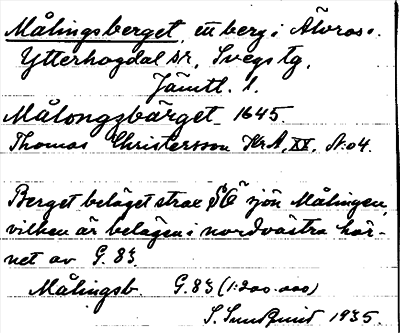 Målingsberget, ett berg i Älvros s.
Ytterhogdal sr, Svegs tg.
Jämtl. l.
Målongzbärget 1645.
Thomas Christersson KrA, XX, N:o 4.
Berget beläget strax SÖ sjön Målingen,
vilken är belägen i nordvästra hör-
net av G. 83
Målingsb. G. 83 (1:200.000)
S. Sundquist 1935.